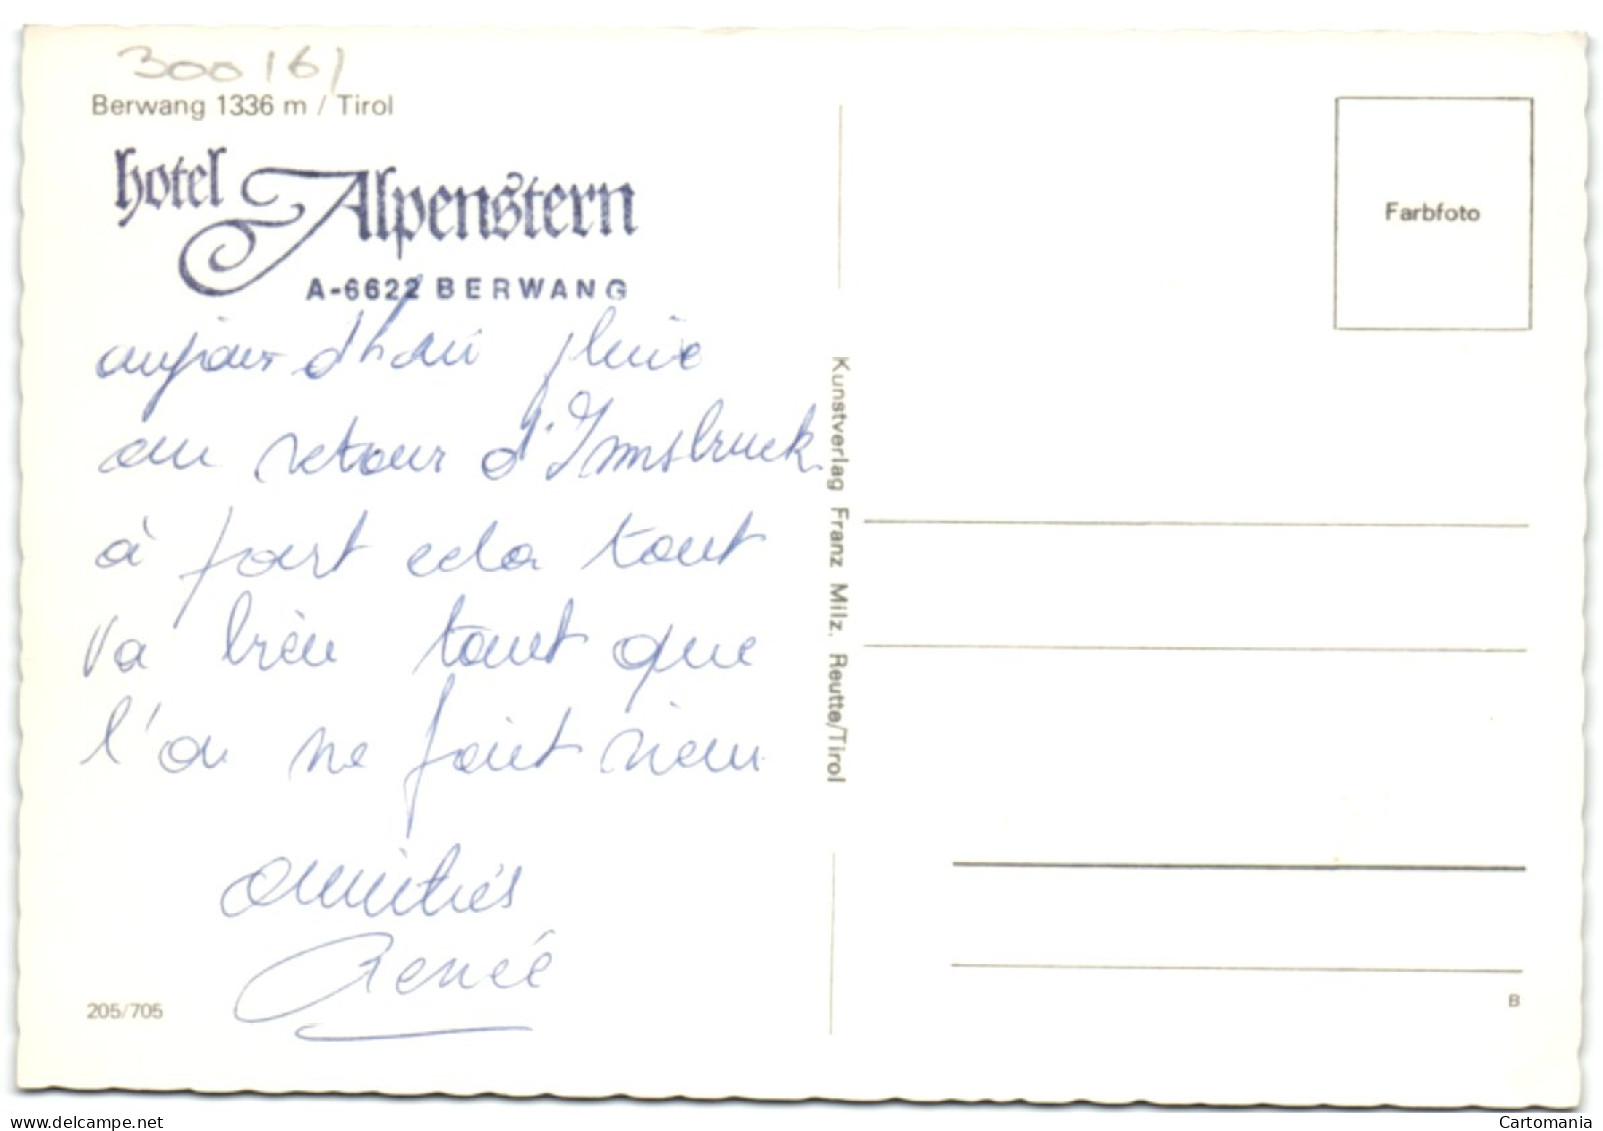 300 161
Berwang 1336 m / Tirol
hotel Alpenstern
A-6622 BERWANG
aujourd'hui pluie
au retour d'Innsbruck
à part cela tout
va bien tant que
l'on ne fait rien
amitiés
Renée
205/705
Kunstverlag Franz Milz, Reutte/Tirol
Farbfoto
B
www.delcampe.net
Cartomania